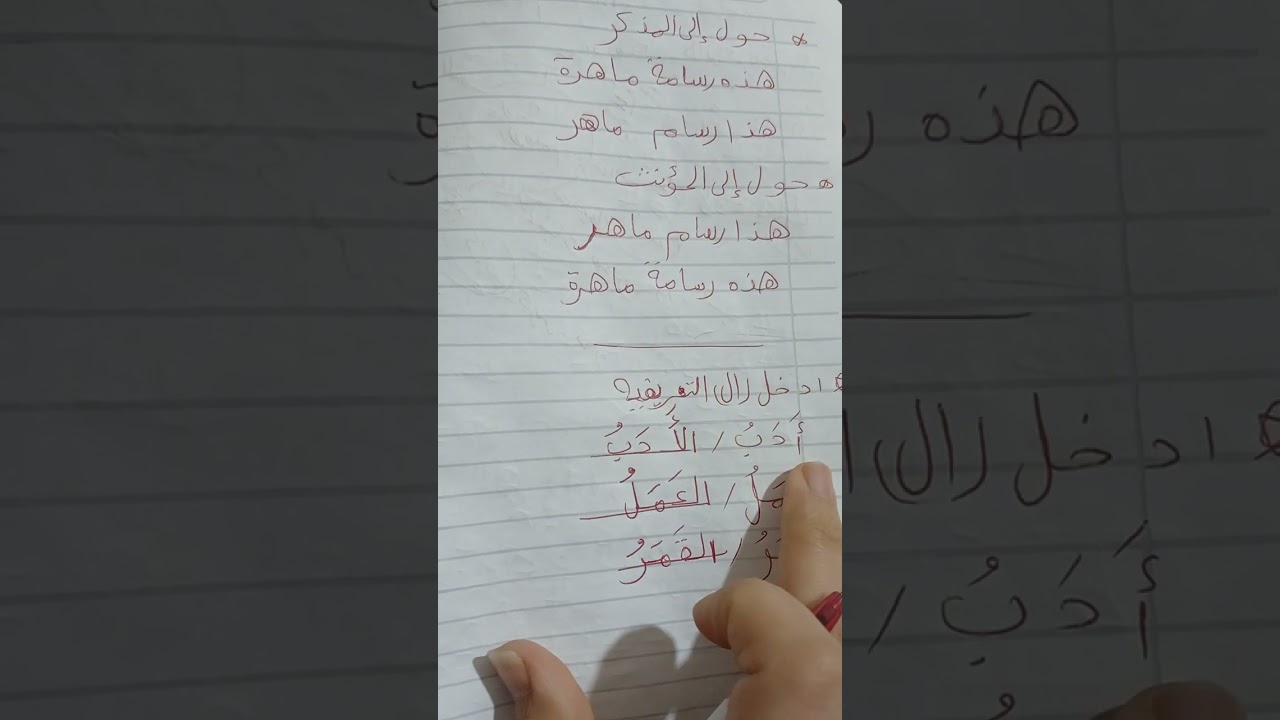 * حول إلى المذكر
هذه رسامة ماهرة
هذا رسام ماهر
* حول إلى المؤنث
هذا رسام ماهر
هذه رسامة ماهرة
* ادخل (ال) التعريفية
أَدَبُ / الأَدَبُ
مَلُ / العَمَلُ
رُ / القَمَرُ